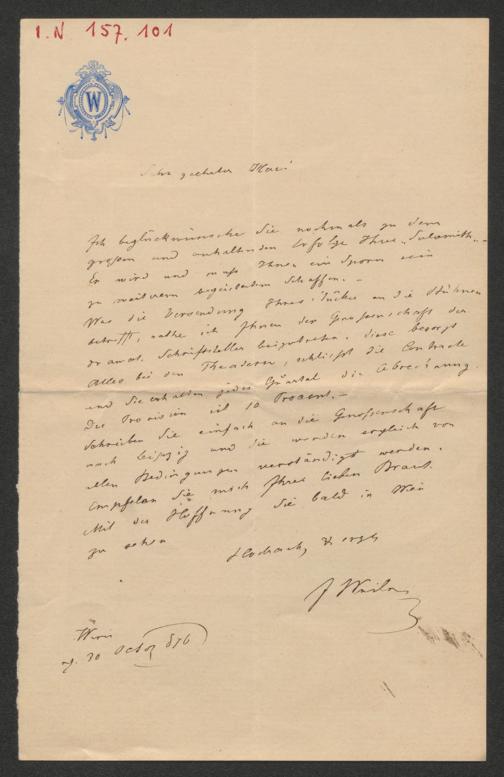 I.N 157.101
W
Sehr geehrter Herr!
Ich beglückwünsche Sie nochmals zu dem
großen und anhaltenden Erfolge Ihres „Sulamith".
Er wird und muß Ihnen ein Sporn sein
zu weiterem begeisterten Schaffen. –
Was die Versendung Ihres Stückes an die Bühnen
betrifft, rathe ich Ihnen der Genossenschaft der
dramat. Schriftsteller beizutreten. Diese besorgt
Alles bei den Theatern, schließt die Contracte
und Sie erhalten jedes Quartal die Abrechnung.
Die Provision ist 10 Procent. –
Schreiben Sie einfach an die Genossenschaft
nach Leipzig und Sie werden sogleich von
allen Bedingungen verständigt werden.
Empfelen Sie mich Ihrer lieben Braut.
Mit der Hoffnung Sie bald in Wien
zu sehen
Hochacht
Weilen
Wien
20 Octob 876